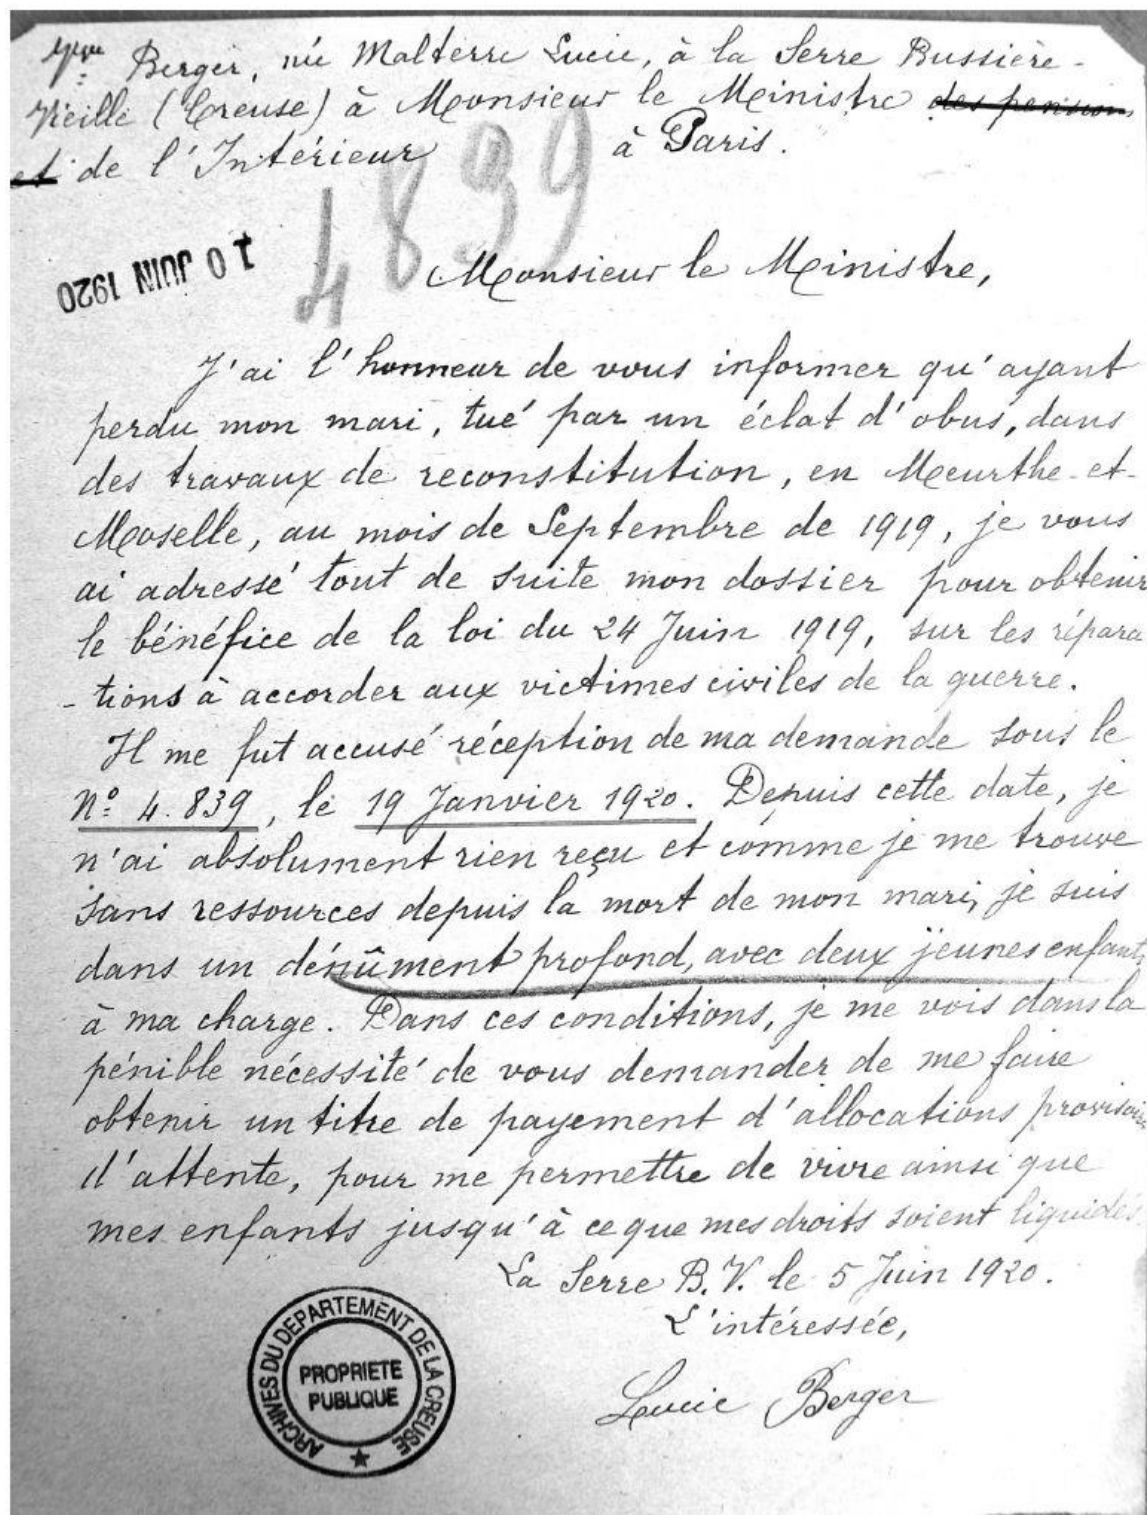 Vve Berger, née Malterre Lucie, à la Serre Bussière-
Vieille (Creuse) à Monsieur le Ministre des pensions
et de l'Intérieur à Paris.
4839
10 JUIN 1920
Monsieur le Ministre,
J'ai l'honneur de vous informer qu'ayant
perdu mon mari, tué par un éclat d'obus, dans
des travaux de reconstitution, en Meurthe-et-
Moselle, au mois de Septembre de 1919, je vous
ai adressé tout de suite mon dossier pour obtenir
le bénéfice de la loi du 24 Juin 1919, sur les répara
-tions à accorder aux victimes civiles de la guerre.
Il me fut accusé réception de ma demande sous le
N° 4.839, le 19 Janvier 1920. Depuis cette date, je
n'ai absolument rien reçu et comme je me trouve
sans ressources depuis la mort de mon mari, je suis
dans un dénûment profond, avec deux jeunes enfants
à ma charge. Dans ces conditions, je me vois dans la
pénible nécessité de vous demander de me faire
obtenir un titre de payement d'allocations provisoires
d'attente, pour me permettre de vivre ainsi que
mes enfants jusqu'à ce que mes droits soient liquidés
La Serre B.V. le 5 Juin 1920.
L'intéressée,
Lucie Berger
ARCHIVES DU DEPARTEMENT DE LA CREUSE
PROPRIETE
PUBLIQUE